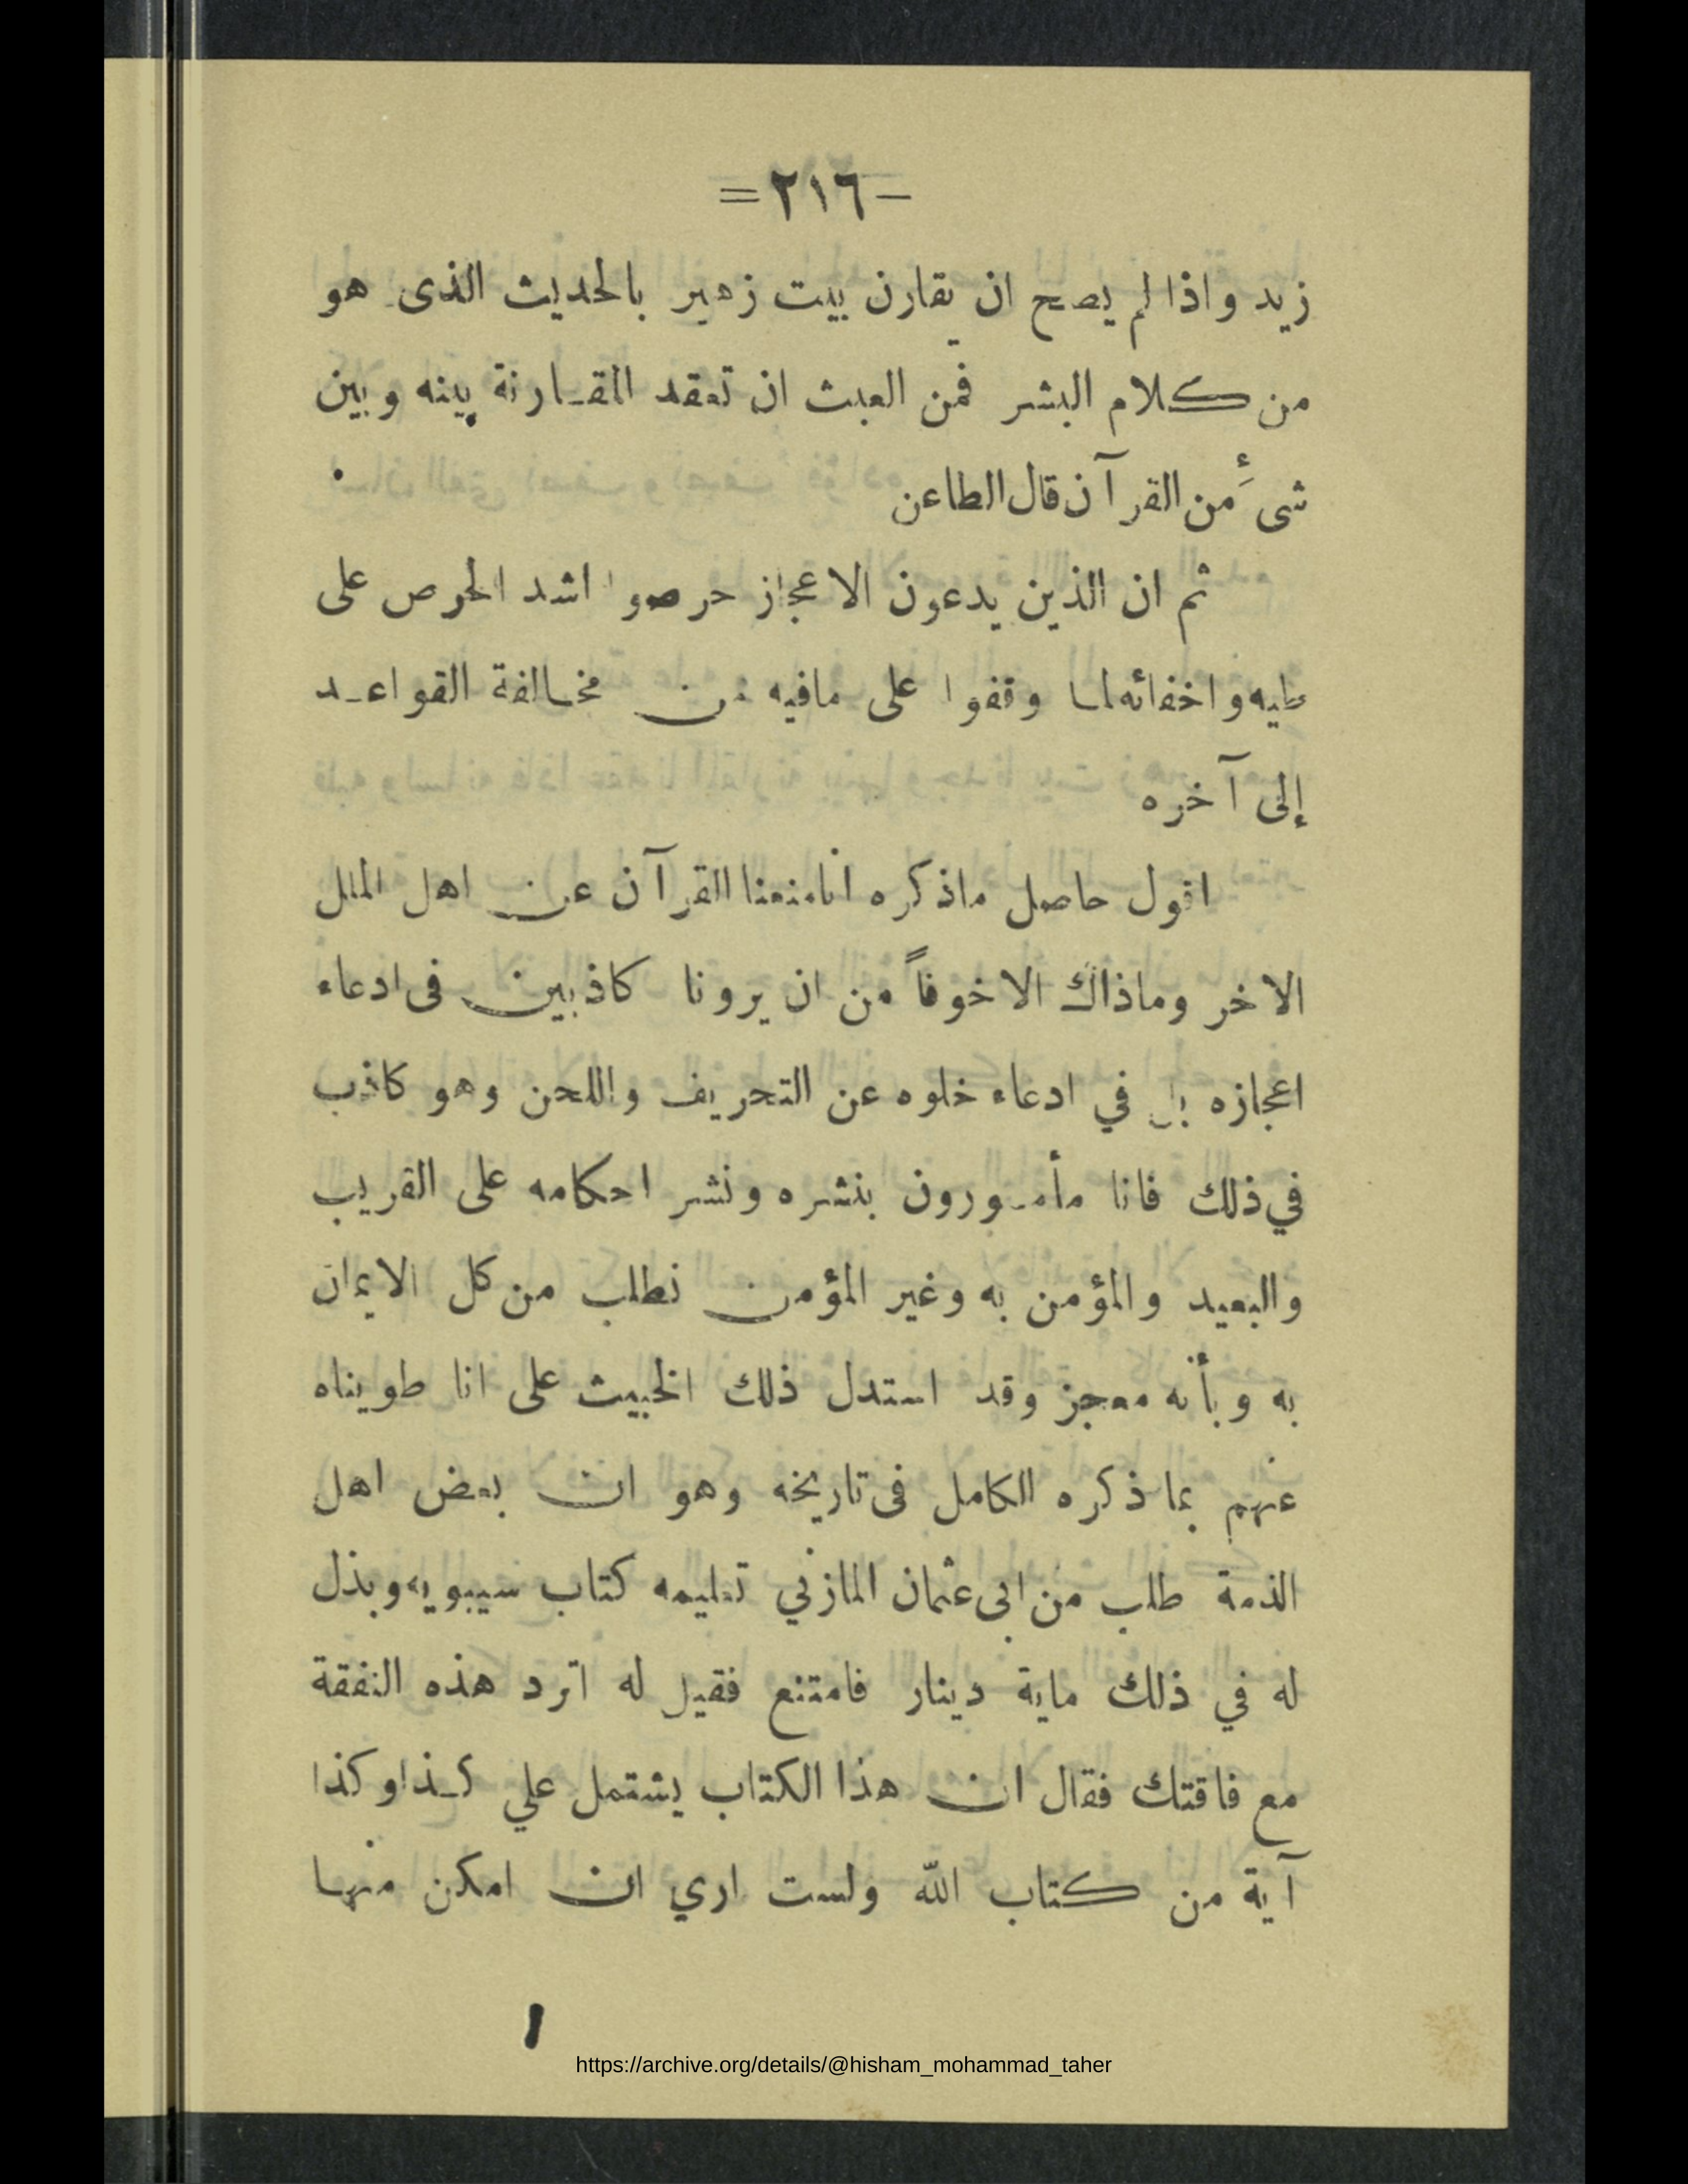 –٢١٦=
زيد واذا لم يصح ان يقارن بيت زهير بالحديث الذى هو
من كلام البشر فمن العبث ان تعقد المقارنة بينه وبين
شىءٍ من القرآن قال الطاعن
ثم ان الذين يدعون الاعجاز حرصوا اشد الحرص على
طيه واخفائه لما وقفوا على مافيه من مخالفة القواعد
إلى آخره
اقول حاصل ماذكره انامنعنا القرآن عن اهل الملل
الاخر وماذاك الاخوفاً من ان يرونا كاذبين فى ادعاء
اعجازه بل في ادعاء خلوه عن التحريف واللحن وهو كاذب
في ذلك فانا مأمورون بنشره ونشر احكامه على القريب
والبعيد والمؤمن به وغير المؤمن نطلب من كل الايمان
به وبأنه معجز وقد استدل ذلك الخبيث على انا طويناه
عنهم بما ذكره الكامل فى تاريخه وهو ان بعض اهل
الذمة طلب من ابى عثمان المازني تعليمه كتاب سيبويه وبذل
له في ذلك ماية دينار فامتنع فقيل له اترد هذه النفقة
مع فاقتك فقال ان هذا الكتاب يشتمل علي كذا وكذا
آية من كتاب الله ولست اري ان امكن منها
https://archive.org/details/@hisham_mohammad_taher